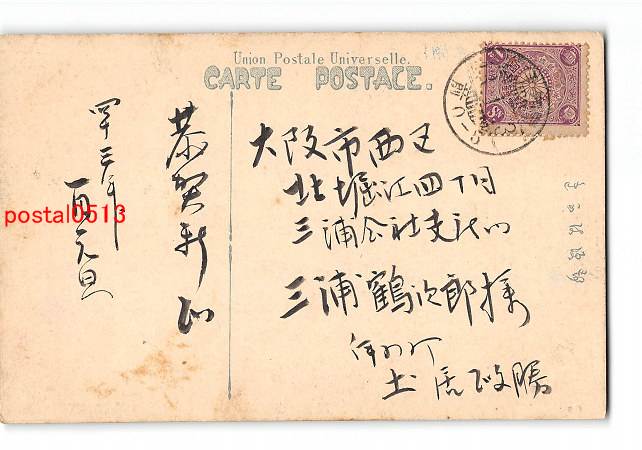 Union Postale Universelle.
CARTE POSTALE.
大阪市西区
北堀江四丁目
三浦会社支店
三浦鶴次郎様
土居政勝
恭賀新正
四十三年
一月元旦
postal0513